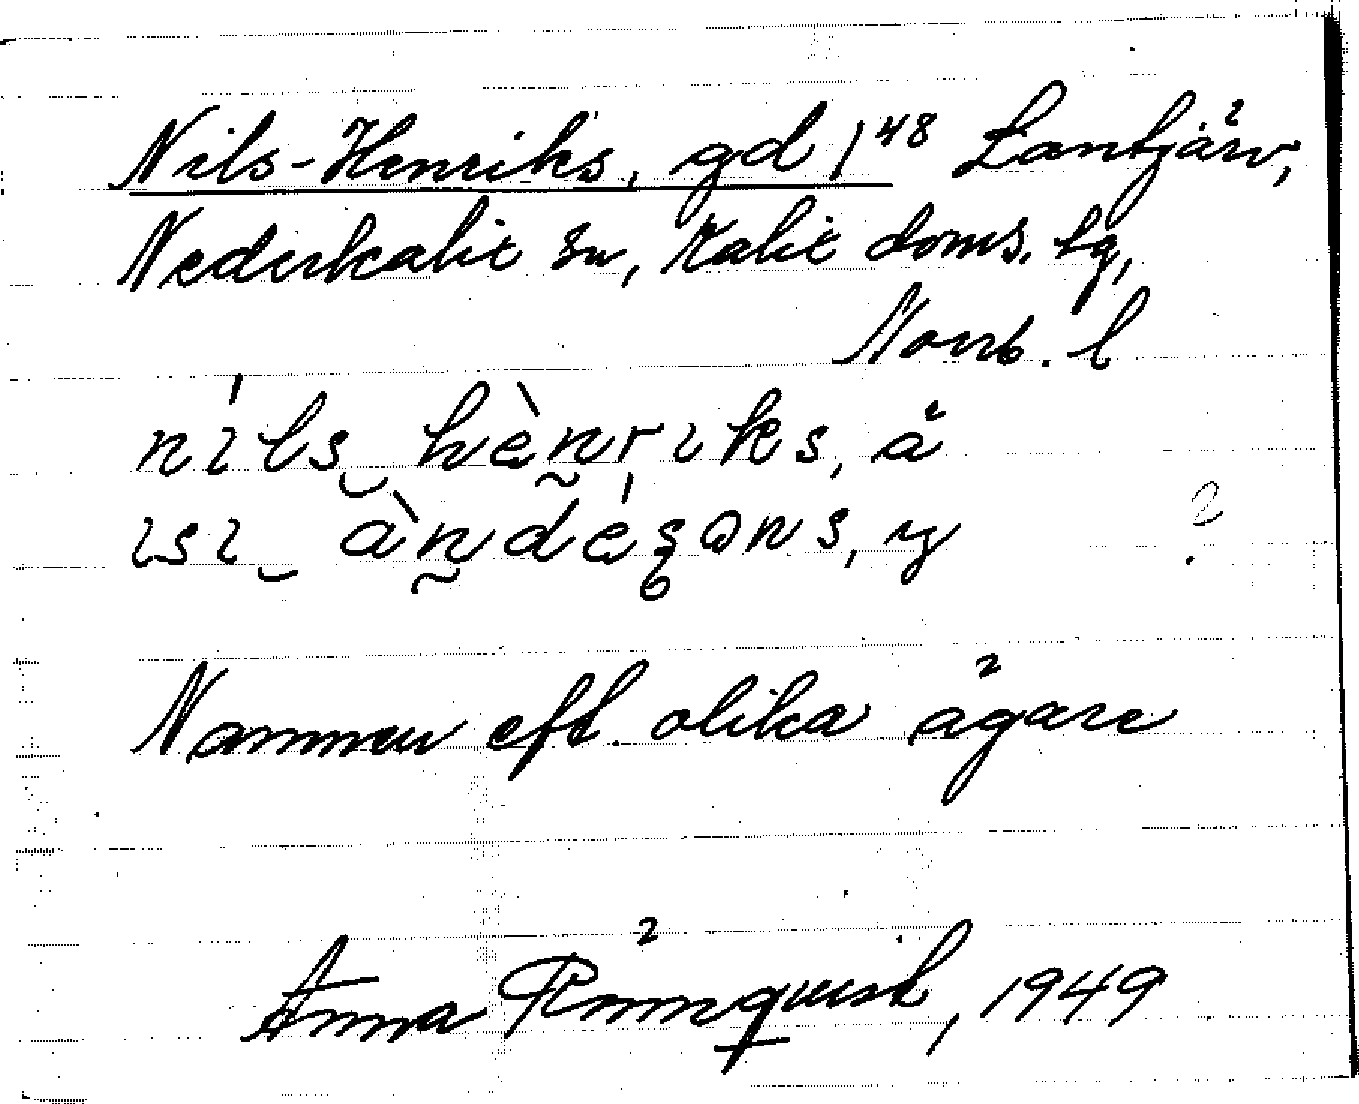 Nils-Henriks, gd 1⁴⁸ Lantjärv,
Nederkalix sn, Kalix doms. lg,
Norrb. l
nils henriks, å
isi andeṣons, y ?
Namnen eft. olika ägare
Anna Rönnquist, 1949